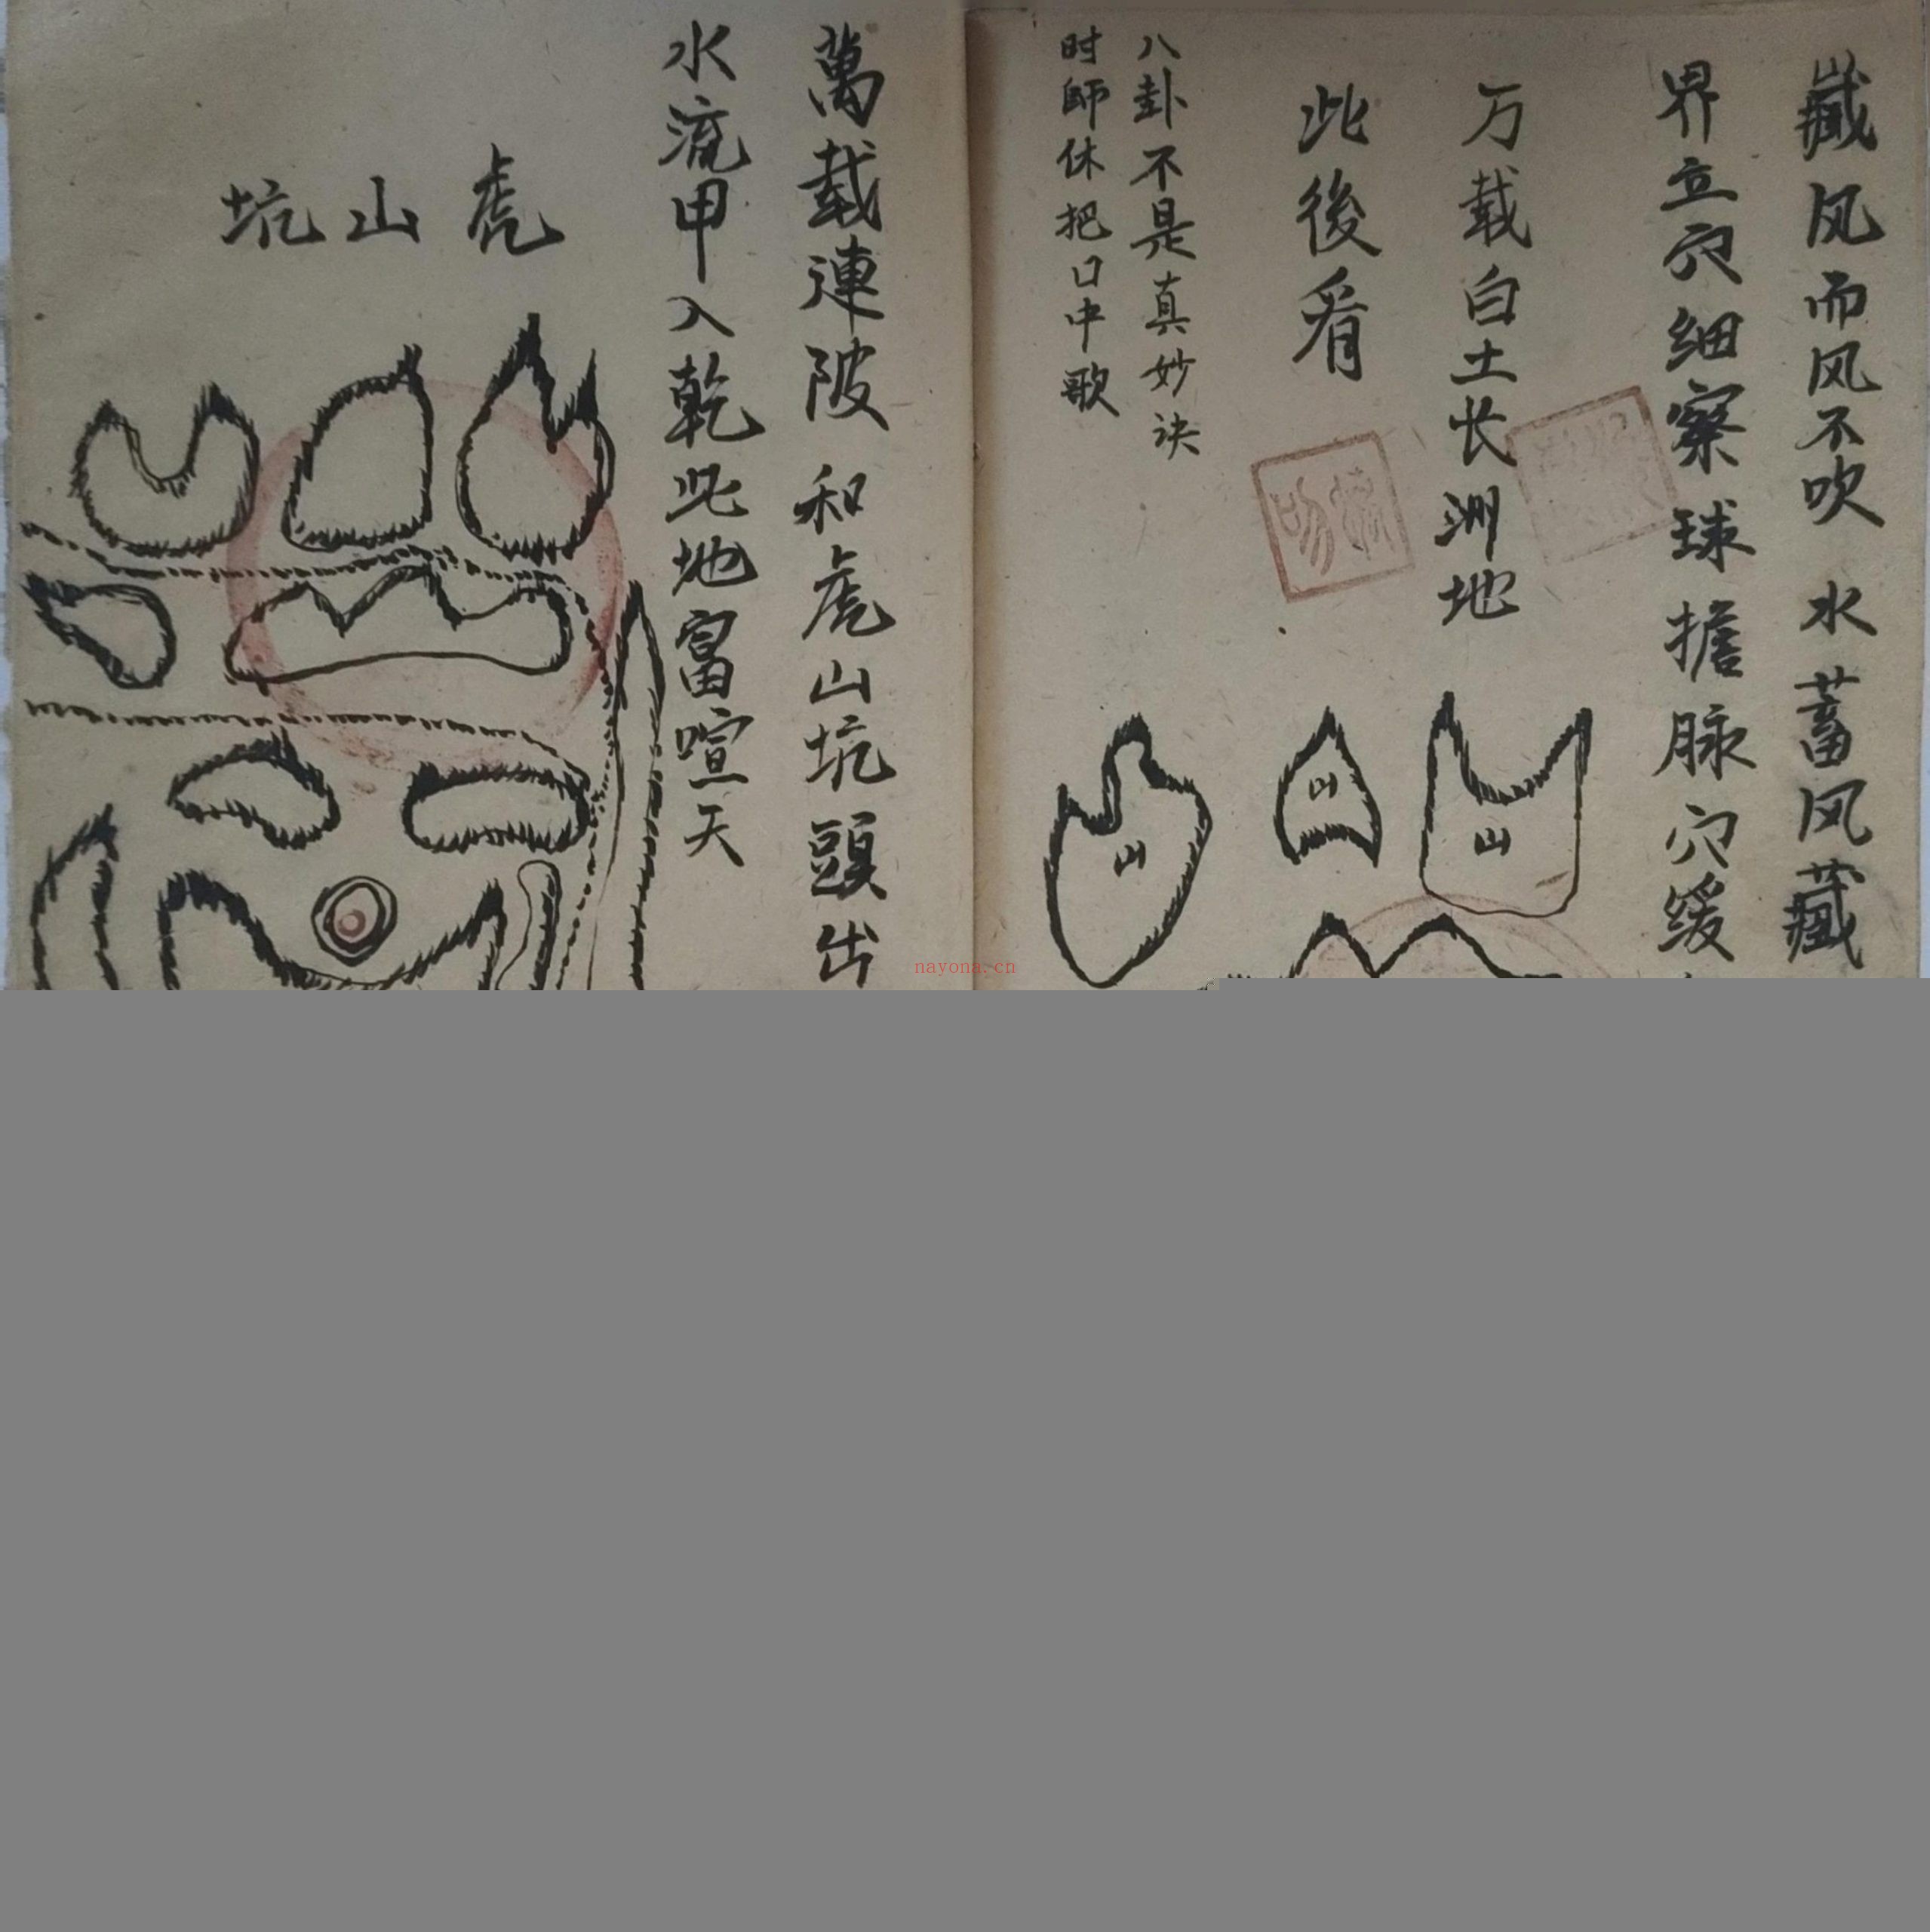 藏风而风不吹水蓄风藏
界立穴细察球擔脉穴缓
万载白土长洲地
此後看
八卦不是真妙诀
时師休把口中歌
山
山
山
萬载連陂和虎山坑頭出
水流甲入乾此地富喧天
虎山坑
nayona.cn